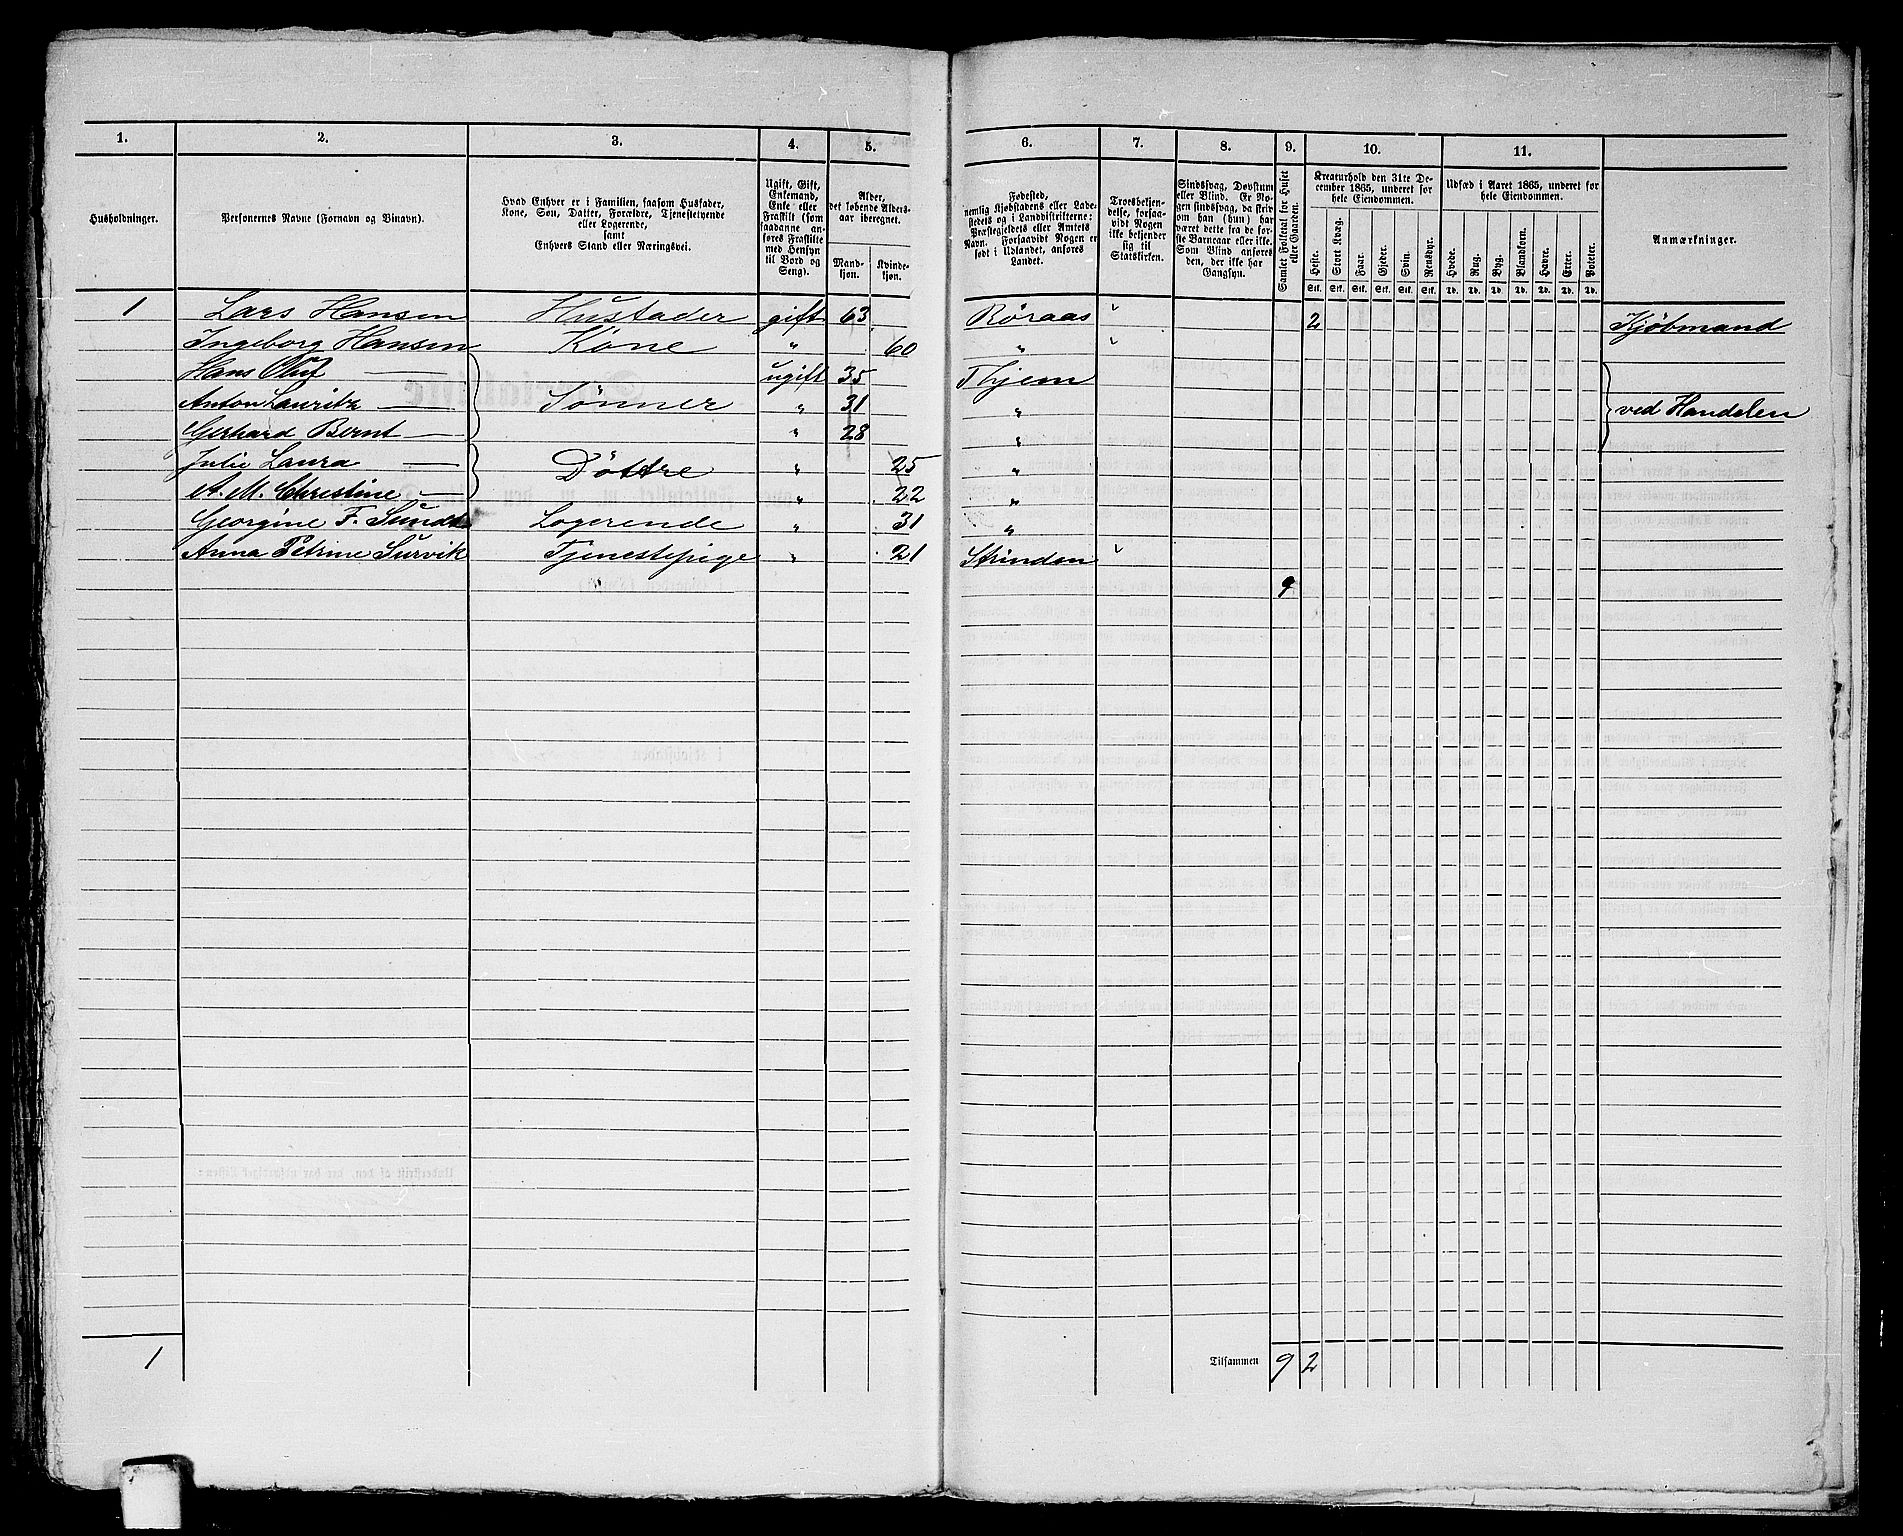 1. 2. 3. 4. 5. 6. 7. 8. 9. 10. 11.
Husholdninger.
Personernes Navne (Fornavn og Binavn).
Hvad Enhver er i Familien, saasom Husfader,
Kone, Søn, Datter, Forældre, Tjenestetyende
eller Logerende,
samt
Enhvers Stand eller Næringsvei.
Ugift, Gift,
Enkemand,
Enke eller
Fraskilt (som
saadanne an-
føres Fraskilte
med Hensyn
til Bord og
Seng).
Alder,
det løbende Alders-
aar iberegnet.
Mand-
kjøn.
Kvinde-
kjøn.
Fødested,
nemlig Kjøbstadens eller Lade-
stedets og i Landdistrikterne:
Præstegjeldets eller Amtets
Navn. Forsaavidt Nogen er
født i Udlandet, anføres
Landet.
Troesbekjen-
delse, forsaa-
vidt Nogen
ikke bekjender
sig til
Statskirken.
Sindssvag, Døvstum
eller Blind. Er No-
gen sindssvag, da skriv
om han (hun) har
været dette fra de før-
ste Barneaar eller ikke.
Som Blind anføres
den, der ikke har
Gangsyn.
Samlet Folketal for Huset
eller Gaarden.
Kreaturhold den 31te De-
cember 1865, underet for
hele Eiendommen.
Heste. Stort Kvæg. Faar. Gjeder. Svin. Rensdyr.
Stk. Stk. Stk. Stk. Stk. Stk.
Udsæd i Aaret 1865, underet for
hele Eiendommen.
Hvede. Rug. Byg. Blandkorn. Havre. Erter. Poteter.
Td. Td. Td. Td. Td. Td. Td.
Anmærkninger.
1 Lars Hansen Husfader gift 63 Röraas " 2 Kjöbmand
Ingeborg Hansen Kone " 60 " "
Hans Oluf — ugift 35 Thjem
Anton Lauritz — Sönner " 31 " ved Handelen
Gerhard Bernt — " 28 "
Julie Laura — Döttre " 25 "
A. M. Christine — " 22 "
Georgine F. Sundt Logerende " 31 "
Anna Petrine Survik Tjenestepige " 21 Strinden "
9
1 Tilsammen 9 2